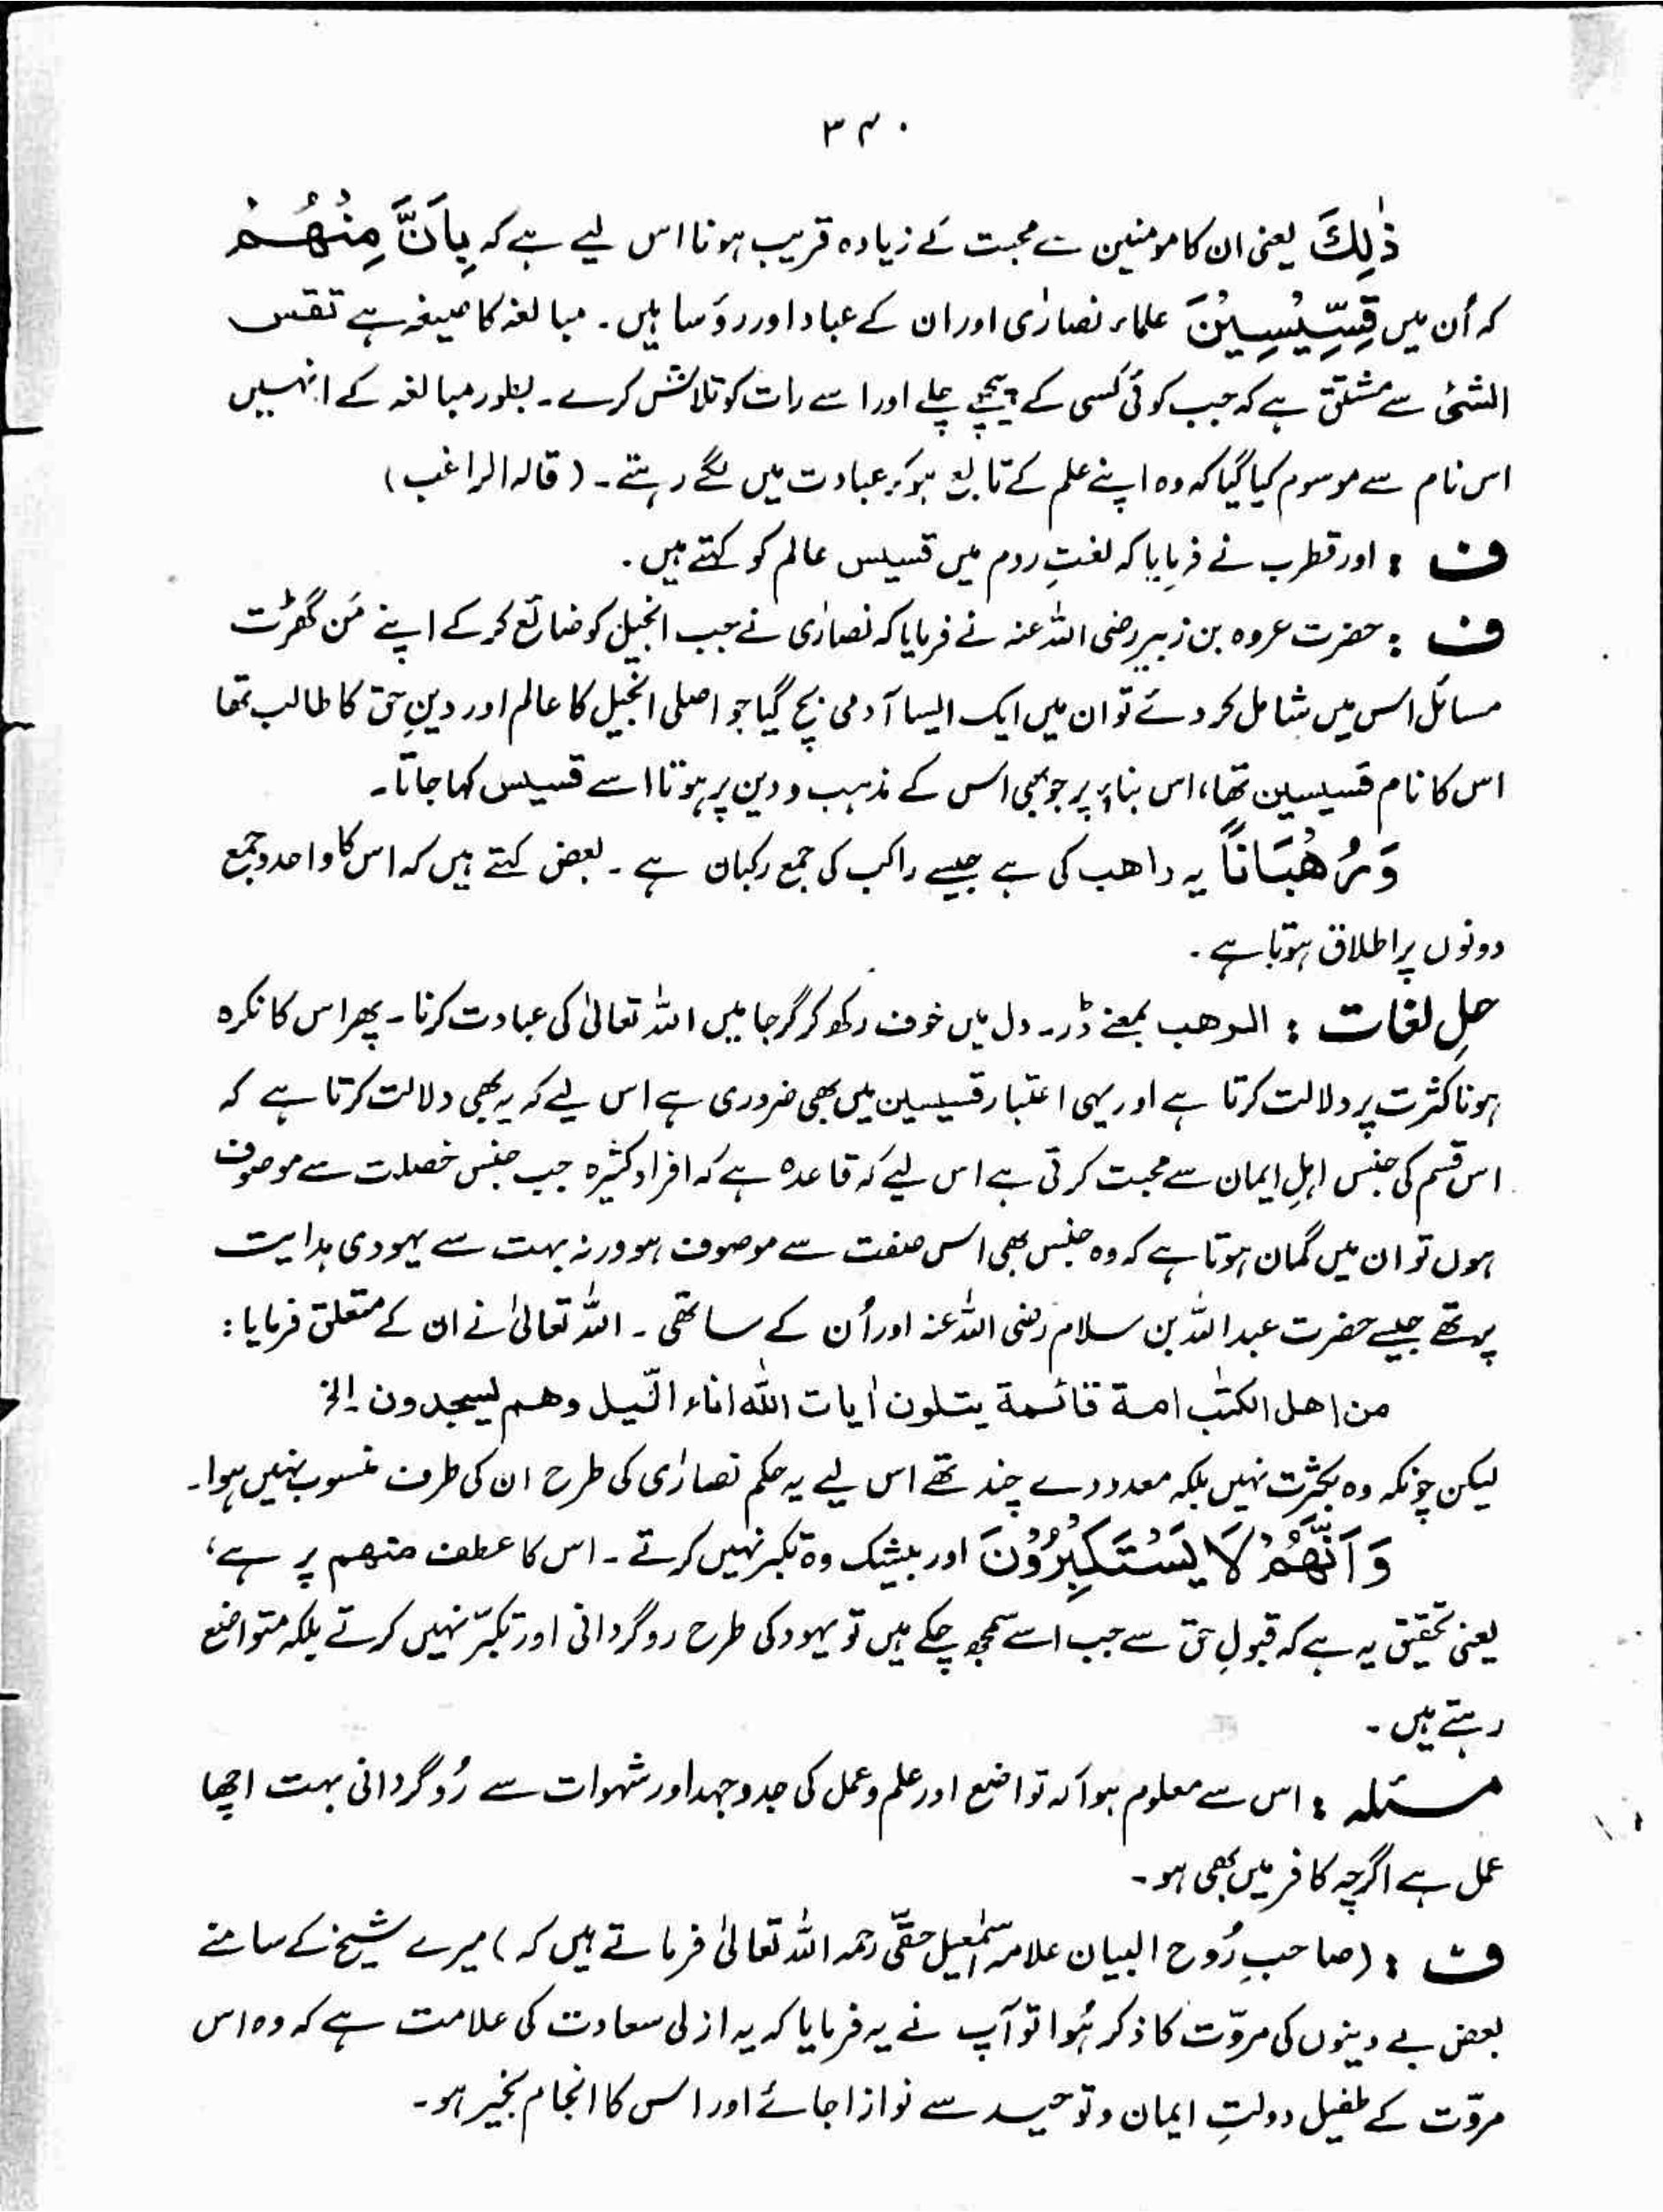 ۳۴۰
ذٰلِكَ یعنی ان کا مومنین سے محبت کے زیادہ قریب ہونا اس لیے ہے کہ بِاَنَّ مِنْهُمْ
کہ اُن میں قِسِّیْسِیْنَ علماء نصارٰی اور ان کے عباد اور رؤسا ہیں۔ مبالغہ کا صیغہ ہے تقس
الشئ سے مشتق ہے کہ جب کوئی کسی کے پیچھے چلے اور اسے رات کو تلاش کرے۔ بطور مبالغہ کے انہیں
اس نام سے موسوم کیا گیا کہ وہ اپنے علم کے تابع ہو کر عبادت میں لگے رہتے۔ (قالہ الراغب)
ف : اور قطرب نے فرمایا کہ لغتِ روم میں قسیس عالم کو کہتے ہیں۔
ف : حضرت عروہ بن زبیر رضی اللہ عنہ نے فرمایا کہ نصارٰی نے جب انجیل کو ضائع کر کے اپنے مَن گھڑت
مسائل اس میں شامل کر دئے تو ان میں ایک ایسا آدمی بچ گیا جو اصلی انجیل کا عالم اور دینِ حق کا طالب تھا
اس کا نام قسیسین تھا، اس بناء پر جو بھی اس کے مذہب و دین پر ہوتا اسے قسیس کہا جاتا۔
وَرُهْبَانًا یہ راھب کی ہے جیسے راکب کی جمع رکبان ہے۔ بعض کہتے ہیں کہ اس کا واحد و جمع
دونوں پر اطلاق ہوتا ہے۔
حلِ لغات : الرھب بمعنے ڈر۔ دل میں خوف رکھ کر گرجا میں اللہ تعالیٰ کی عبادت کرنا۔ پھر اس کا نکرہ
ہونا کثرت پر دلالت کرتا ہے اور یہی اعتبار قسیسین میں بھی ضروری ہے اس لیے کہ یہ بھی دلالت کرتا ہے کہ
اس قسم کی جنس اہلِ ایمان سے محبت کرتی ہے اس لیے کہ قاعدہ ہے کہ افراد کثیرہ جب جنس خصلت سے موصوف
ہوں تو ان میں گمان ہوتا ہے کہ وہ جنس بھی اس صفت سے موصوف ہو ورنہ بہت سے یہودی ہدایت
پر تھے جیسے حضرت عبداللہ بن سلام رضی اللہ عنہ اور اُن کے ساتھی۔ اللہ تعالیٰ نے ان کے متعلق فرمایا :
من اھل الکتٰب امة قائمة یتلون اٰیات اللہ اناء الّیل وھم یسجدون الخ
لیکن چونکہ وہ بکثرت نہیں بلکہ معدودے چند تھے اس لیے یہ حکم نصارٰی کی طرح ان کی طرف منسوب نہیں ہوا۔
وَاَنَّهُمْ لَا یَسْتَكْبِرُوْنَ اور بیشک وہ تکبر نہیں کرتے۔ اس کا عطف منھم پر ہے،
یعنی تحقیق یہ ہے کہ قبولِ حق سے جب اسے سمجھ چکے ہیں تو یہود کی طرح روگردانی اور تکبّر نہیں کرتے بلکہ متواضع
رہتے ہیں۔
مسئلہ : اس سے معلوم ہوا کہ تواضع اور علم و عمل کی جدوجہد اور شہوات سے رُوگردانی بہت اچھا
عمل ہے اگرچہ کافر میں بھی ہو۔
ف : (صاحبِ رُوح البیان علامہ اسمٰعیل حقّی رحمہ اللہ تعالیٰ فرماتے ہیں کہ) میرے شیخ کے سامنے
بعض بے دینوں کی مروّت کا ذکر ہُوا تو آپ نے یہ فرمایا کہ یہ ازلی سعادت کی علامت ہے کہ وہ اس
مروّت کے طفیل دولتِ ایمان و توحید سے نوازا جائے اور اس کا انجام بخیر ہو۔